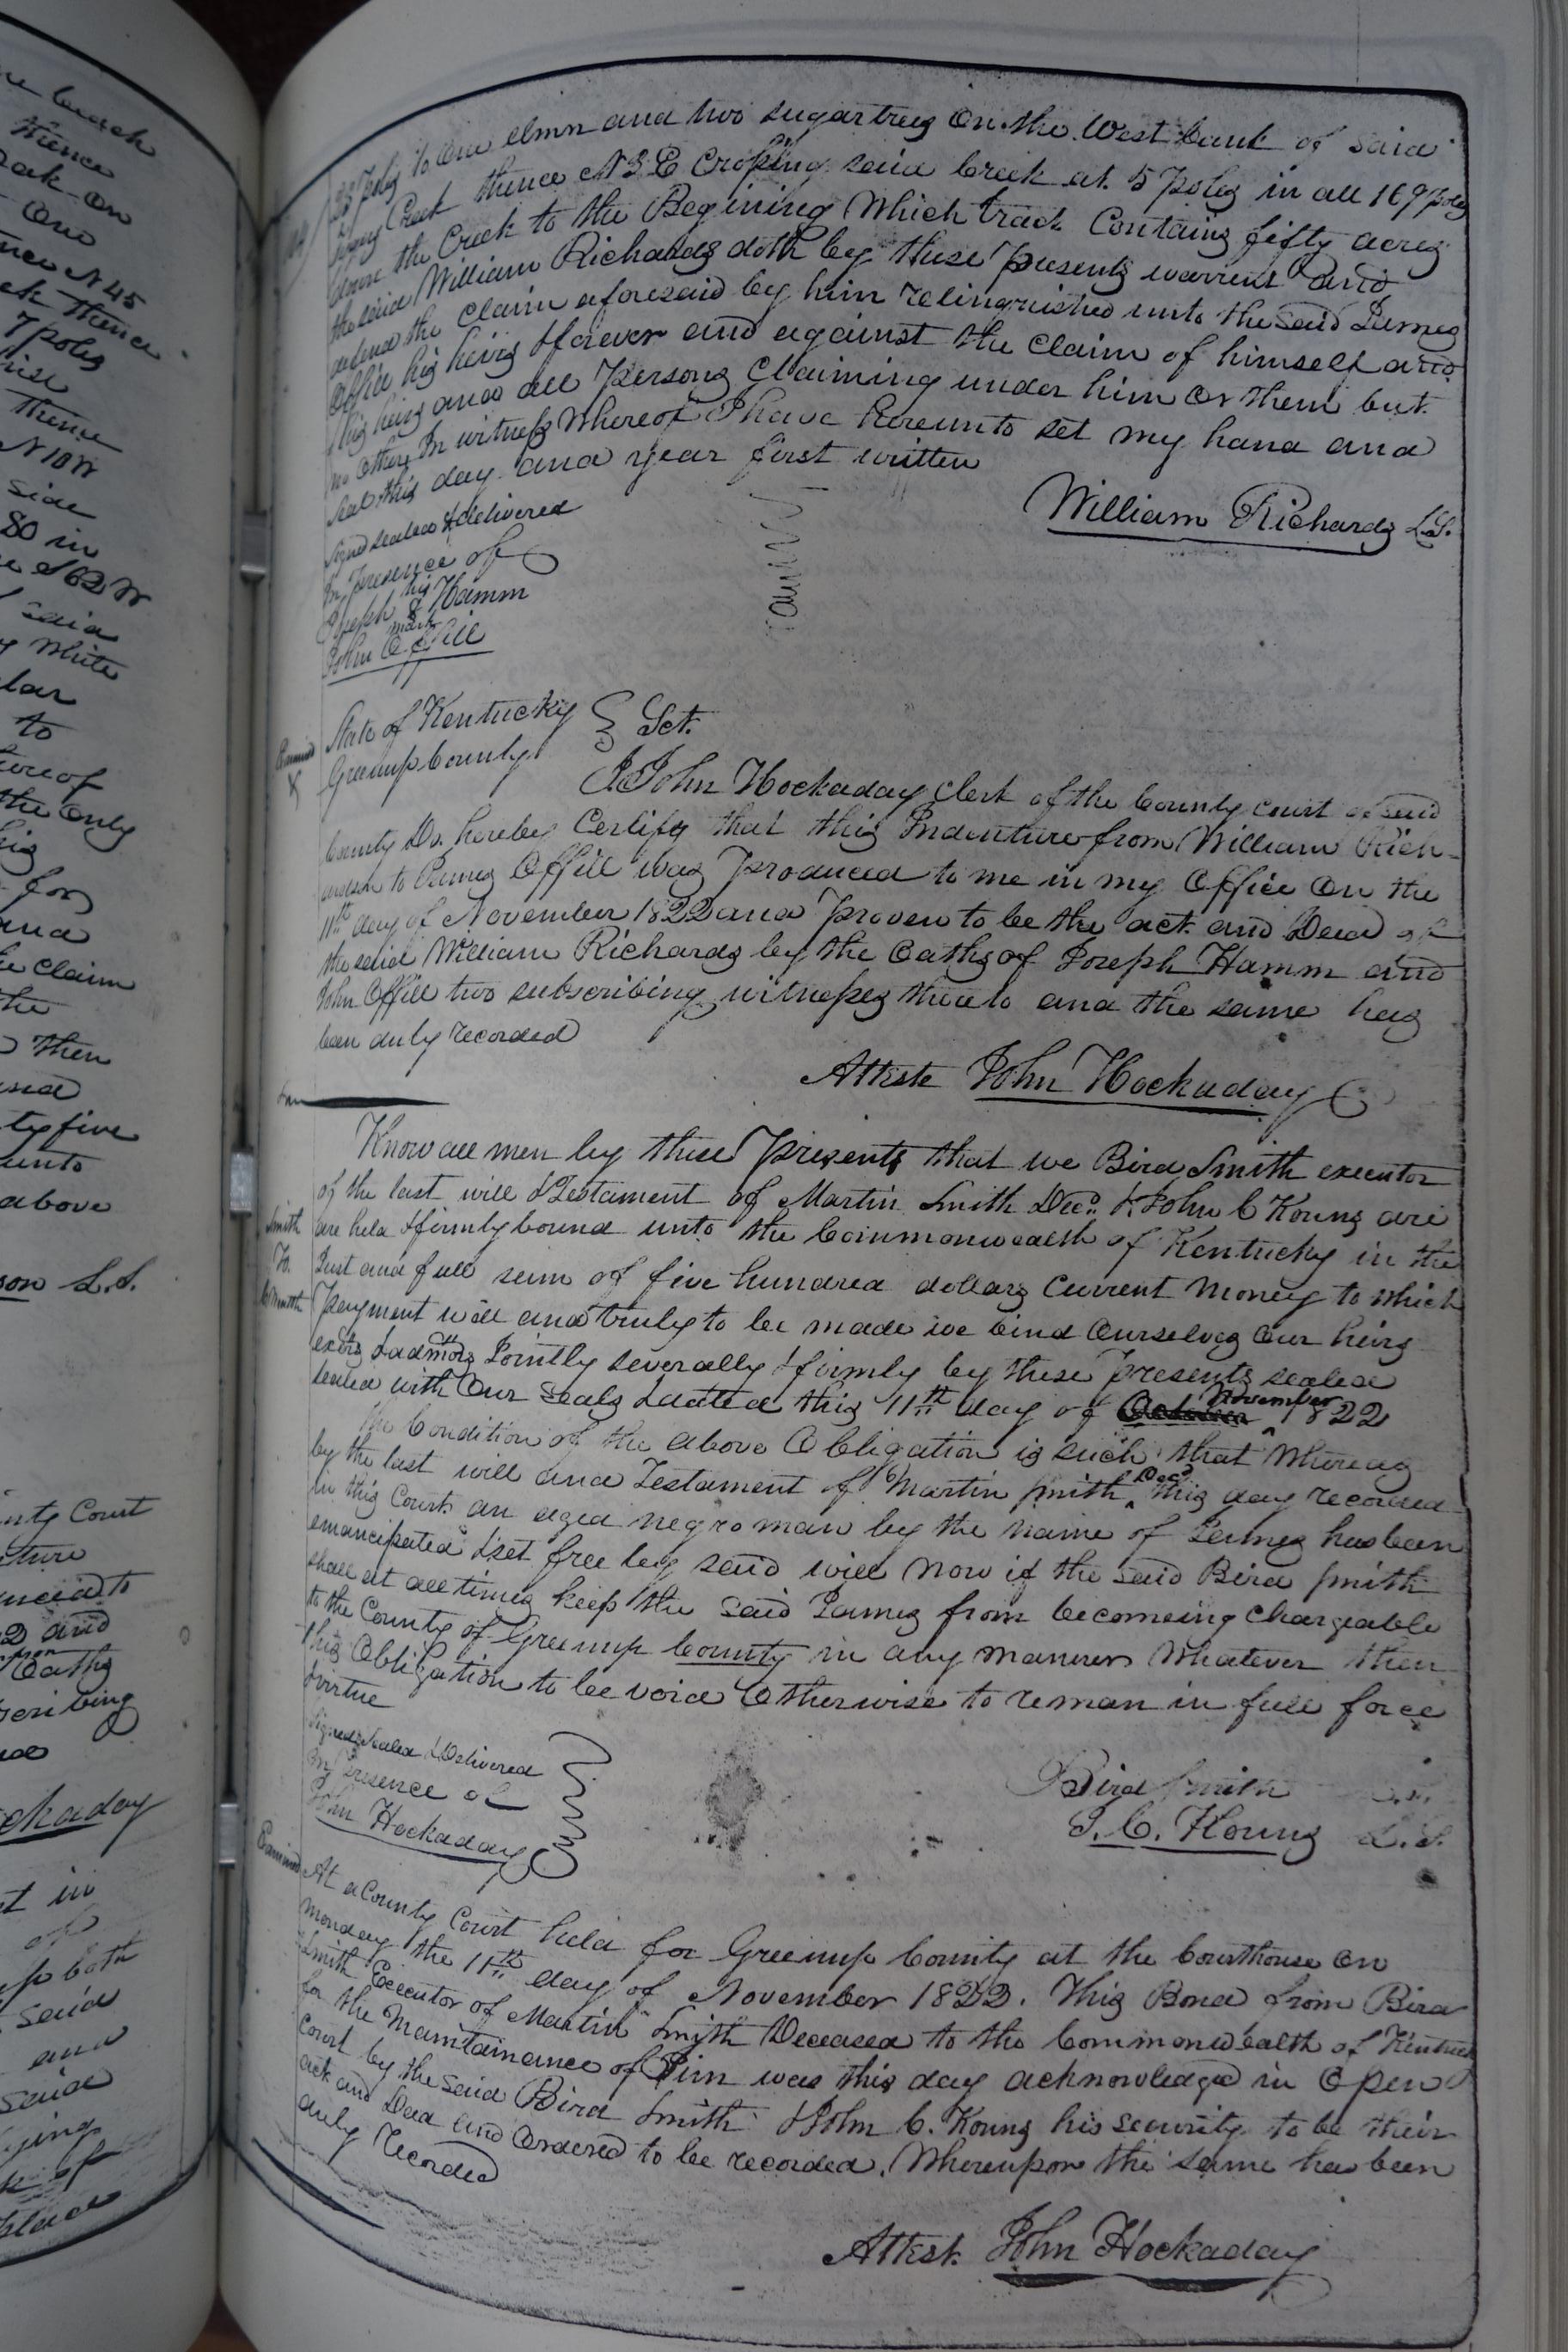 ne branch
thence
oak on
and
nce N 45
ck thence
7 poles
thence
N 10 W
side
80 in
ce S 62 W
said
y white
lar
to
hereof
the only
his
for
and
he claim
the
then
and
ty five
unto
above
son L.S.
nty Court
ture
2 and
Oaths
scribing
ckaday
t in
of
up both
said
and
said
ying
k of
place
38 poles to one elmn and two sugartrees On the West bank of said
Creek thence N 3 E Croping said Creek at 5 poles in all 169 poles
down the Creek to the Begining Which track Contains fifty acres
the said William Richards doth by these presents warrent and
defend the claim aforesaid by him relinquished unto the said James
Offill his heirs & forever and against the claim of himself and
his heirs and all persons Claiming under him Or them but
no others In witness Whereof I have hereunto set my hand and
Seal this day and year first written
William Richards L.S.
Signed sealed & delivered
In presence of
Joseph his Hamm
mark
John Offill
Examined
State of Kentucky } Sct.
Greenup County
I John Hockaday Clerk of the County court of said
County Do. hereby Certify that this Indenture from William Rich-
ardson to James Offill was produced to me in my Office On the
11th day of November 1822 and proven to be the act and Deed of
the said William Richards by the Oaths of Joseph Hamm and
John Offill two subscribing witnesses thereto and the same has
been duly recorded
Atteste John Hockaday
Smith
To.
Know all men by these presents that we Bird Smith executor
of the last will & Testament of Martin Smith Decd. & John C Kouns are
are held & firmly bound unto the Commonwealth of Kentucky in the
Just and full sum of five hundred dollars Current Money to which
payment well and truly to be made we bind Ourselves Our heirs
exors & admors Jointly severally & firmly by these presents sealed
sealed with Our seals dated this 11th day of October November 1822
The Condition of the above Obligation is such that Whereas
by the last will and Testament of Martin Smith Decd this day recorded
in this Court an aged negro man by the name of James has been
emancipated & set free by said will Now if the said Bird Smith
shall at all times keep the said James from becomeing Chargeable
to the County of Greenup County in any manner Whatever then
this Obligation to be void Otherwise to reman in full force
& virtue
Signed Sealed & Delivered
In presence of
John Hockaday
Bird Smith L.S.
J. C. Kouns L.S.
Examined
At a County Court held for Greenup County at the Courthouse On
monday the 11th day of November 1822. This Bond from Bird
Smith Executor of Martin Smith Deceased to the Commonwealth of Kentucky
for the Maintainance of Jim was this day acknowledged in Open
Court by the said Bird Smith & John C. Kouns his security to be their
act and Deed and Ordered to be recorded. Whereupon the same has been
duly recorded
Attest. John Hockaday